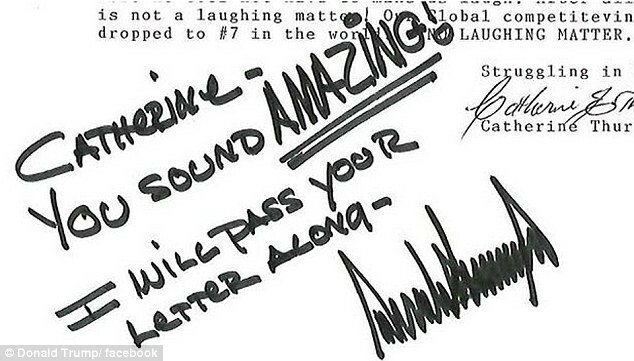 is not a laughing matter! Our Global competitevin
dropped to #7 in the world NO LAUGHING MATTER.
Struggling in
Catherine Thur
CATHERINE-
YOU SOUND AMAZING!
I WILL PASS YOUR
LETTER ALONG-
© Donald Trump/ facebook